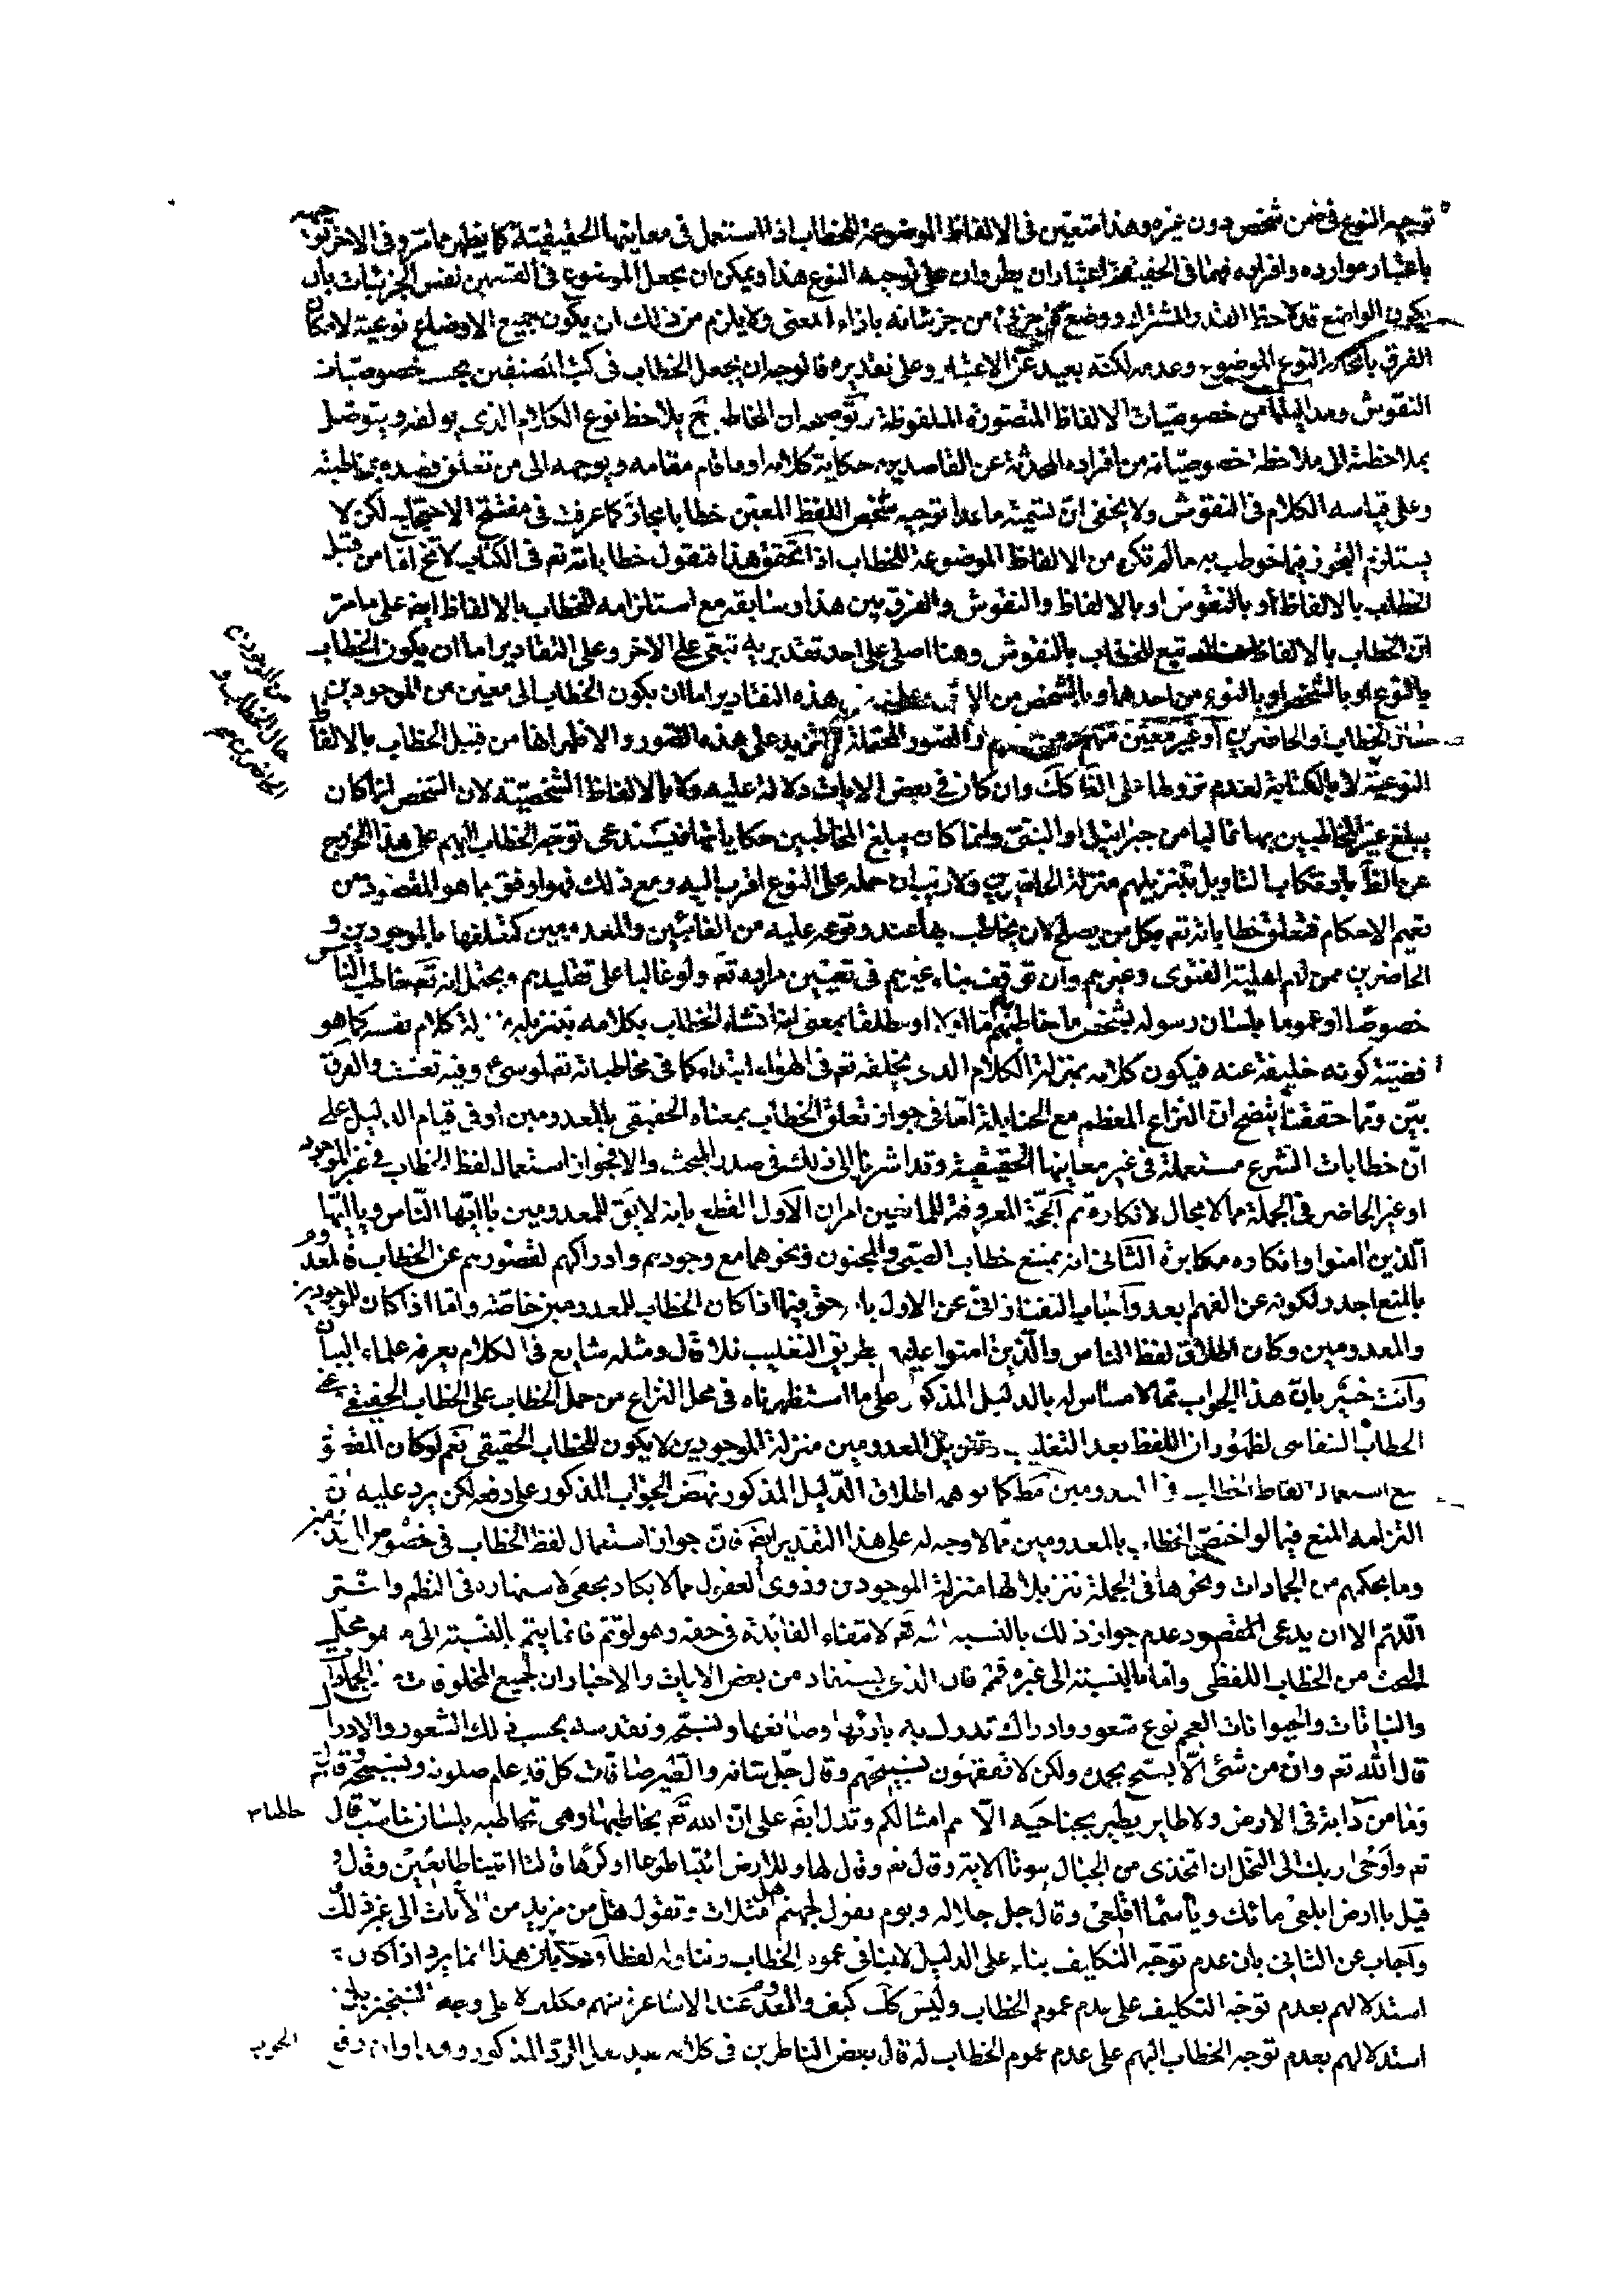 توجيه النوع في ضمن شخص دون غيره وهذا متعين في الالفاظ الموضوعة للخطاب اذا استعمل في معانيها الحقيقية كما يظهر مما مر وفي الاخر توجيه
باعتبار موارده وافراده فهما في الحقيقة اعتباران يطرءان على توجيه النوع هذا ويمكن ان يجعل الموضوع في القسمين نفس الجزئيات بان
يكون الواضع قد لاحظ القدر المشترك ووضع كل جزئي من جزئياته بازاء المعنى ولا يلزم من ذلك ان يكون جميع الاوضاع نوعية لامكان
الفرق النوع الموضوع وعدمه لكنه بعيد عن الاعتبار وعلى تقديره فالوجه ان يجعل الخطاب في كتب المصنفين بحسب خصوصيات
النقوش وما من خصوصيات الالفاظ المتصورة الملفوظة توضيحه ان المخاطب ح يلاحظ نوع الكلام الذي يولفه ويتوصل
بملاحظته الى ملاحظة خصوصياته من افراده المحدثة عن القاصدين حكاية كلامه او ما قام مقامه ويوجهه الى من تعلق قصده بمخاطبته
وعلى قياسه الكلام في النقوش ولا يخفى ان تسمية ما عدا توجيه شخص اللفظ المعين خطابا مجاز كما عرفت في مفتتح الاحتجاج لكن لا
يستلزم التجوز فيما خوطب به مما لم تكن من الالفاظ الموضوعة للخطاب اذا تحقق هذا فنقول خطاباته تعم في الكتاب لا تخ اما من قبيل
الخطاب بالالفاظ او بالنقوش او بالالفاظ والنقوش والفرق بين هذا وسابقه مع استلزامه للخطاب بالالفاظ ايض على ما مر
ان الخطاب بالالفاظ تبع للخطاب بالنقوش وهنا اصلي على احد تقديريه تبعي على الاخر وعلى التقادير اما ان يكون الخطاب
بالنوع او بالشخص او بالنوع من احدهما وبالشخص من الاخر هذه التقادير اما ان يكون الخطاب الى معين من الموجودين
الخطاب او الحاضرين او غير معين منهم والصور المحتملة تزيد على هذه الصور والاظهر انها من قبيل الخطاب بالالفاظ
النوعية لا بالكتابة لعدم نزولها على القاء كك وان كان في بعض الايات دلالة عليه ولا بالالفاظ الشخصية لان الشخص لما كان
يبلغ غير المخاطبين بها غالبا من جبرائيل او النبي وانما كان يبلغ المخاطبين حكاياتها فيستدعي توجه الخطاب اليهم على هذا الخروج
عن الظ بارتكاب التاويل بتنزيلهم منزلة الحاضرين ولا ريب ان حمله على النوع اقرب اليه ومع ذلك فهو اوفق بما هو المقصود من
تعميم الاحكام فتعلق خطاباته تعم بكل من يصلح لان يخاطب بها عند وقوعه عليه من الغائبين والمعدومين كتعلقها بالموجودين و
الحاضرين ممن لهم اهلية الفتوى وغيرهم وان توقف بناء غيرهم في تعيين مراده تعم ولو غالبا على تقليدهم ويحتمل انه تعم خاطب الناس
خصوصا او عموما بلسان رسوله بشخص ما خاطبهم به اولا او مطلقا بمعنى انه انشاء الخطاب بكلامه بتنزيله منزلة كلام نفسه كما هو
قضية كونه خليفة عنه فيكون كلامه بمنزلة الكلام الذي يخلقه تعم في الهواء ابتداء كما في مخاطباته تعم لموسى ع وفيه تعسف والفرق
بين ومما حققنا يتضح ان النزاع المعظم مع الحنابلة اما في جواز تعلق الخطاب بمعناه الحقيقي بالمعدومين او في قيام الدليل على
ان خطابات الشرع مستعملة في غير معاينها الحقيقية وقد اشرنا الى ذلك في صدر المبحث والا فجواز استعمال لفظ الخطاب في غير الموجود
او غير الحاضر في الجملة مما لا مجال لانكاره ثم الحجة المعروفة للمانعين امران الاول القطع بانه لا يق للمعدومين يا ايها الناس ويا ايها
الذين امنوا وانكاره مكابرة الثاني انه يمتنع خطاب الصبي والمجنون ونحوهما مع وجودهم وادراكهم لقصورهم عن الخطاب فالمعدوم
بالمنع اجدر لكونه عن الفهم ابعد واجاب التفتازاني عن الاول بانه حق فيما اذا كان الخطاب للمعدومين خاصة واما اذا كان للموجودين
والمعدومين وكان اطلاق لفظ الناس والذين امنوا عليهم بطريق التغليب فلا قال ومثله شايع في الكلام يعرفه علماء البيان
وانت خبير بان هذا الجواب مما لا مساس له بالدليل المذكور على ما استظهرناه في محل النزاع من حمل الخطاب على الخطاب الحقيقي
الخطاب لظهور ان اللفظ بعد التغليب وتنزيل المعدومين منزلة الموجودين لا يكون للخطاب الحقيقي نعم لو كان المقصود
منع استعمال الفاظ الخطاب في المعدومين مط كما يوهمه اطلاق الدليل المذكور نهض الجواب المذكور على دفعه لكن يرد عليه ان
التزامه المنع فيما لو اختص الخطاب بالمعدومين مما لا وجه له على هذا التقدير ايض فان جواز استعمال لفظ الخطاب في خصوص
وما بحكمهم من الجمادات ونحوها في الجملة تنزيلا لها منزلة الموجودين وذوي العقول مما لا يكاد يخفى لاشتهاره في النظم والنثر
اللهم الا ان يدعى المقصود عدم جواز ذلك بالنسبة اليه تعم لانتفاء الفائدة في حقه وهو لو تم فانما يتم بالنسبة الى ما هو محل
البحث من الخطاب اللفظي واما بالنسبة الى غيره فمم فان الذي يستفاد من بعض الايات والاخبار ان لجميع المخلوقات الجمادات
والنباتات والحيوانات العجم نوع شعور وادراك تدرك به بارئها وصانعها وتسبحه وتقدسه بحسب ذلك الشعور والادراك
قال الله تعم وان من شئ الا يسبح بحمده ولكن لا تفقهون تسبيحهم وقال جل شانه والطير صافات كل قد علم صلوته وتسبيحه وقال تعم
وما من دابة في الارض ولا طاير يطير بجناحيه الا امم امثالكم وتدل ايض على ان الله تعم يخاطبها وهي تخاطبه بلسان قال
تعم واوحى ربك الى النحل ان اتخذي من الجبال بيوتا الاية وقال تعم وقال لها وللارض ائتيا طوعا او كرها قالتا اتينا طايعين وقال و
قيل يا ارض ابلعي مائك ويا سماء اقلعي وقال جل جلاله ويوم نقول لجهنم هل امتلات وتقول هل من مزيد من الايات الى غير ذلك
واجاب عن الثاني بان عدم توجه التكليف بناء على الدليل لا ينافي عموم الخطاب وتناوله لفظا هذا انما يرد اذا كان
استدلالهم بعدم توجه التكليف على عدم عموم الخطاب وليس كك كيف والمعدوم عند الاشاعرة منهم مكلف لا على وجه التنجيز بل
استدلالهم بعدم توجه الخطاب اليهم على عدم عموم الخطاب له قال بعض الناظرين في كلامه بعد نقل الرد المذكور وهذا وان دفع